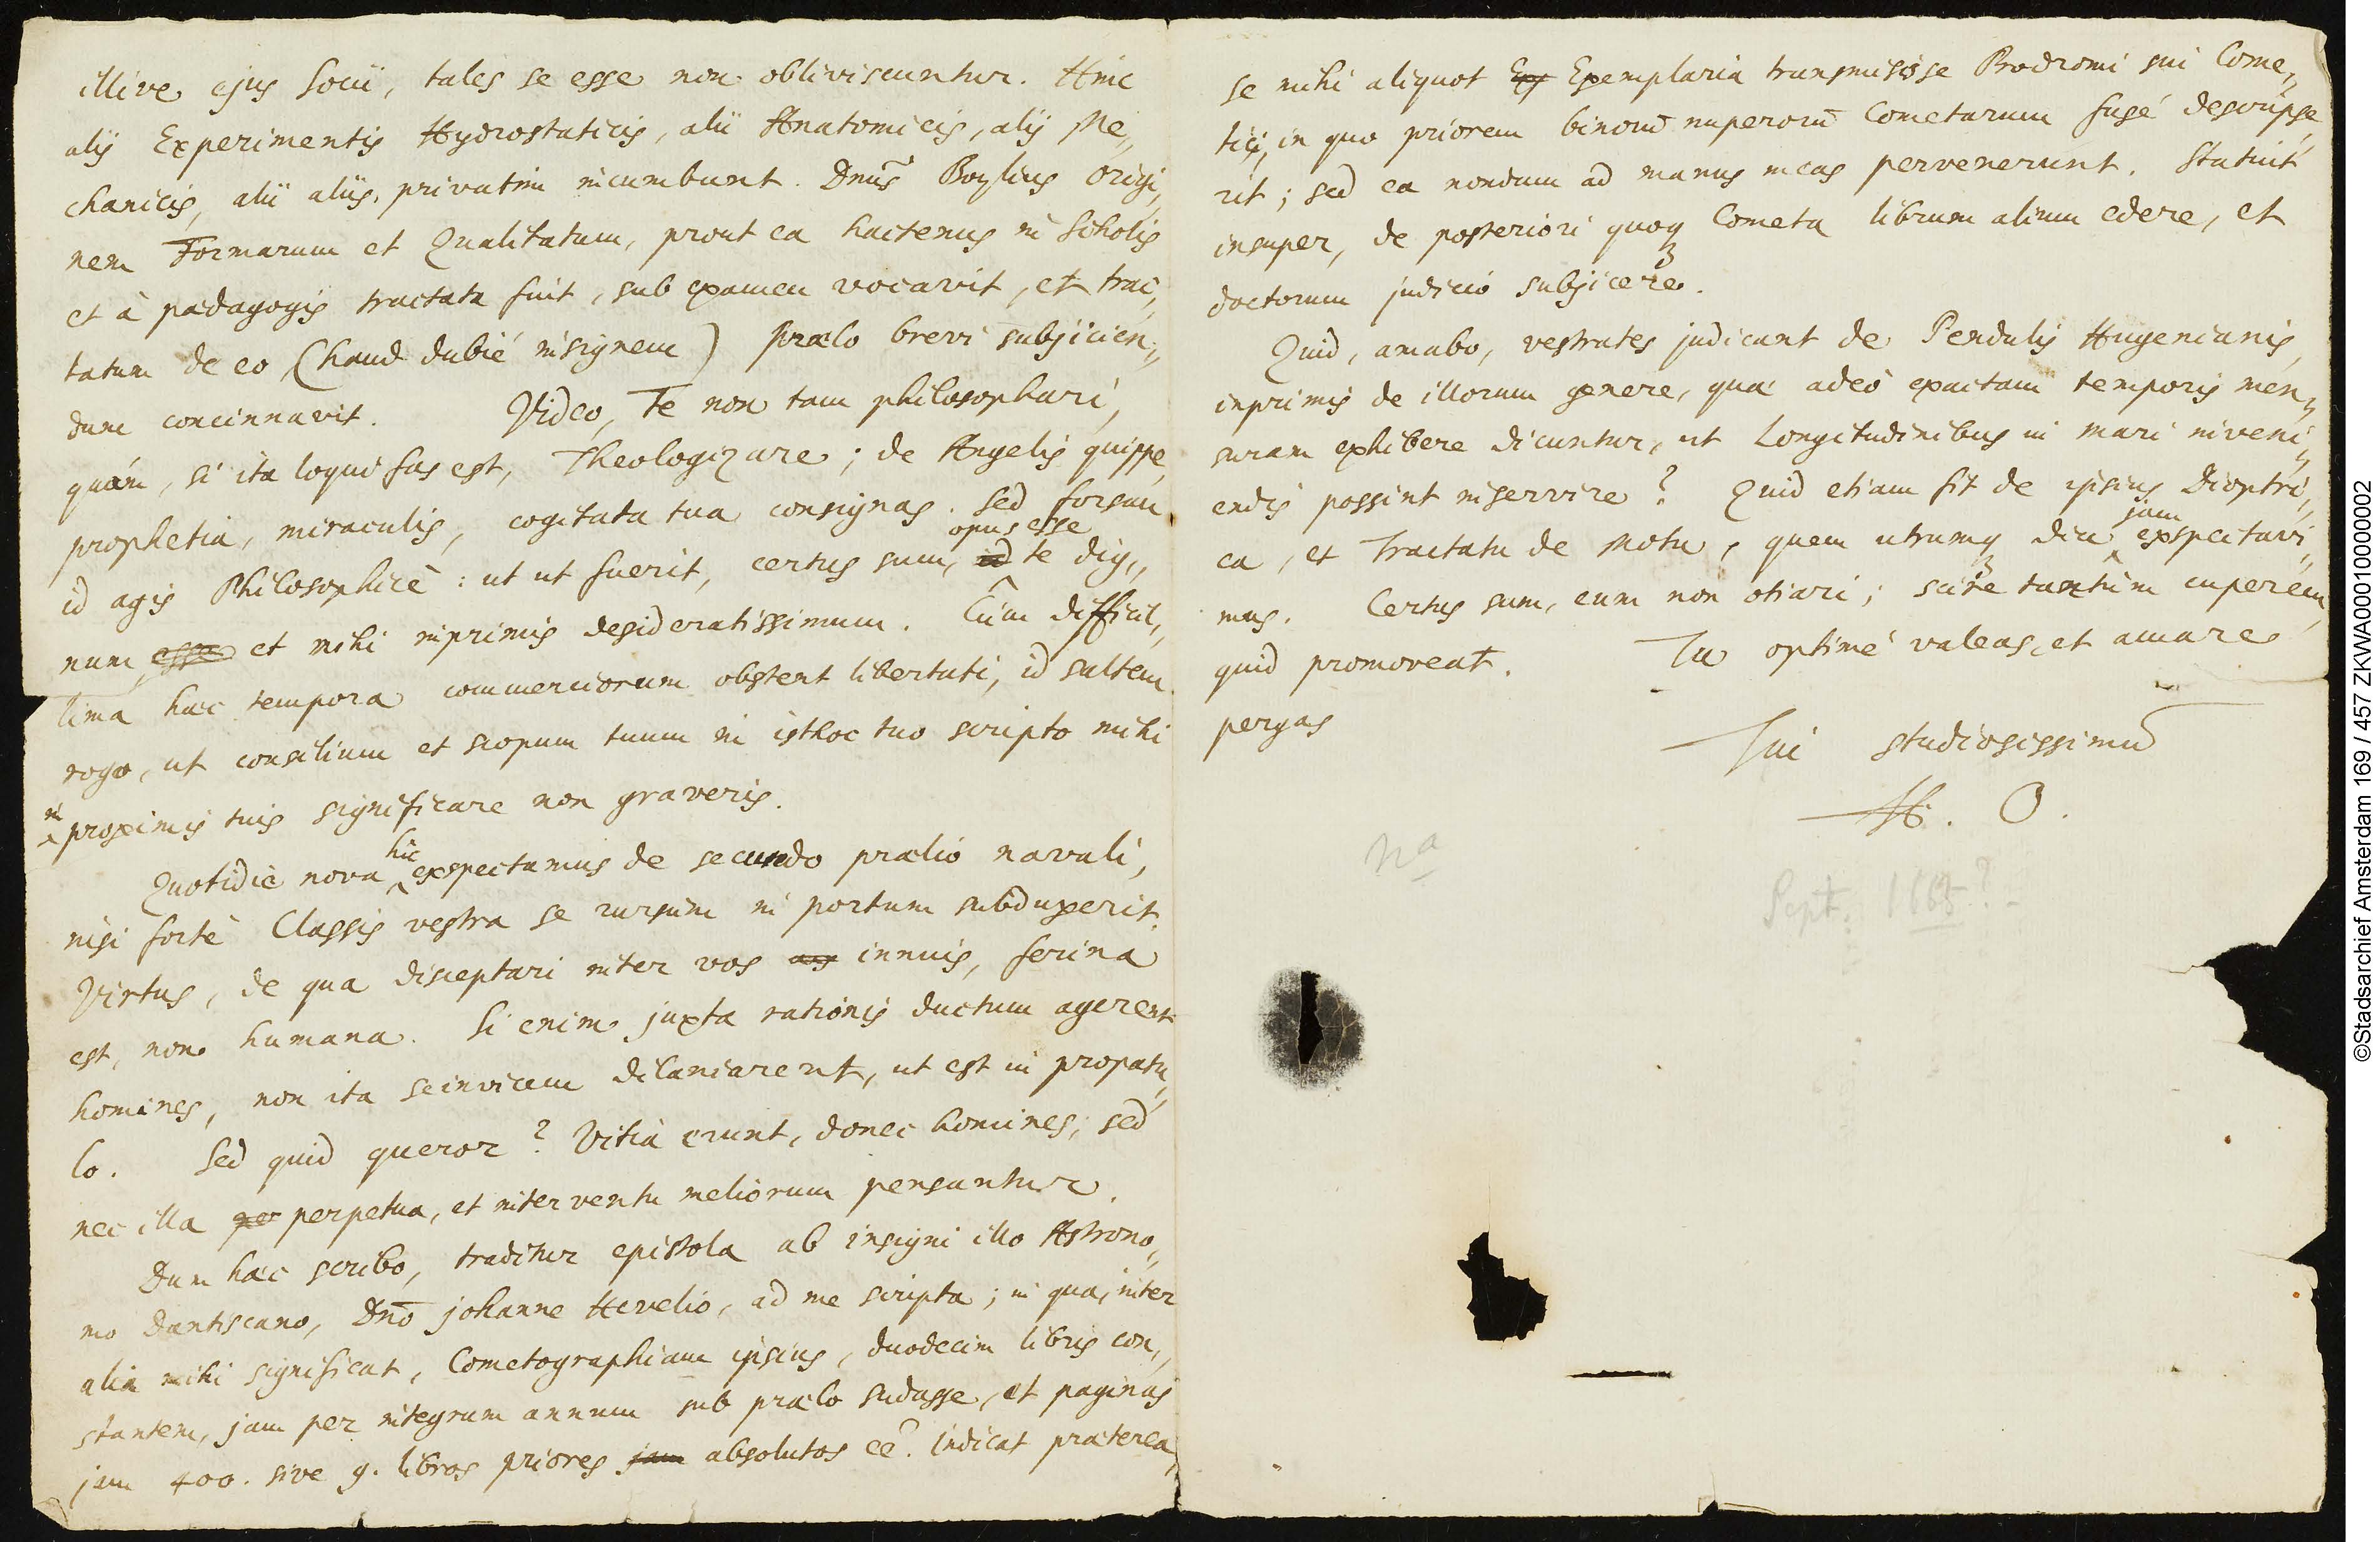 illive ejus Socii, tales se esse non obliviscuntur. Hinc
alij Experimentis Hydrostaticis, alii Anatomicis, alij Me„
chanicis, alii aliis, privatim incumbunt. Dnus Boylius Origi„
nem Formarum et Qualitatum, prout ea hactenus in Scholis
et à paedagogis tractata fuit, sub examen vocavit, et trac„
tatum de eo (haud dubié insignem) praelo brevi subjicien„
dum concinnavit. Video, Te non tam philosophari,
quàm, si ita loqui fas est, Theologizare; de Angelis quippe,
prophetia, miraculis, cogitata tua consignas. Sed forsan
opus esse
id agis Philosophicè: ut ut fuerit, certus sum, id te dig„
num, esse et mihi inprimis desideratissimum. Cùm difficil„
lima haec tempora commerciorum obstent libertati, id saltem
rogo, ut consilium et scopum tuum in isthoc tuo scripto mihi
in proximis tuis significare non graveris.
hic
Quotidiè nova exspectamus de secundo praelio navali,
nisi fortè Classis vestra se rursùm in portum subduxerit.
Virtus, de qua disceptari inter vos innuis, ferina
est, non humana. Si enim juxta rationis ductum agerent
homines, non ita seinvicem dilaniarent, ut est in propatu„
lo. Sed quid queror? Vitia erunt, donec homines; sed
nec illa per perpetua, et interventu meliorum pensantur.
Dum haec scribo, traditur epistola ab insigni illo Astrono„
mo Dantiscano, Dno Johanne Hevelio, ad me scripta; in qua, inter
alia mihi significat, Cometographiam ipsius, duodecim libris con„
stantem, jam per integrum annum sub praelo sudasse, et paginas
jam 400. sive 9. libros priores jam absolutos eê. Indicat praeterea,
se mihi aliquot Exemplaria transmisisse Prodromi sui Come„
tici, in quo priorem binorū nuperorū Cometarum fusé descripse„
rit; sed ea nondum ad manus meas pervenerunt. Statuit
insuper, de posteriori quoq3 Cometa librum alium edere, et
doctorum judicio subjicere.
Quid, amabo, vestrates judicant de Pendulis Hugenianis,
inprimis de illorum genere, quae adeò exactam temporis men„
suram exhibere dicuntur, ut Longitudinibus in mari inveni„
endis possint inservire? Quid etiam fit de ipsius Dioptri„
jam
ca, et Tractatu de Motu, quem utrumq3 diu exspectavi„
mus. Certus sum, eum non otiari; scire tantùm cuperem,
quid promoveat. Tu optimé valeas, et amare
pergas
Tui studiosissimū
H. O.
na
Sept. 1665?
©Stadsarchief Amsterdam 169 / 457 ZKWA00010000002